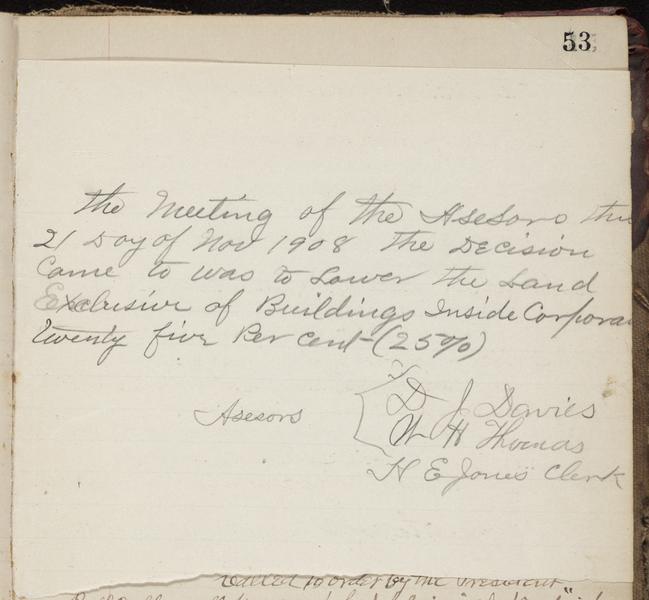 53
the Meeting of the Asesors this
21 Day of Nov 1908 the Decision
Came to was to Lower the Land
Exclusive of Buildings Inside Corpora
twenty five Per cent (25%)
D J Davies
Asesors
W H Thomas
H E Jones Clerk
Called to order by the President